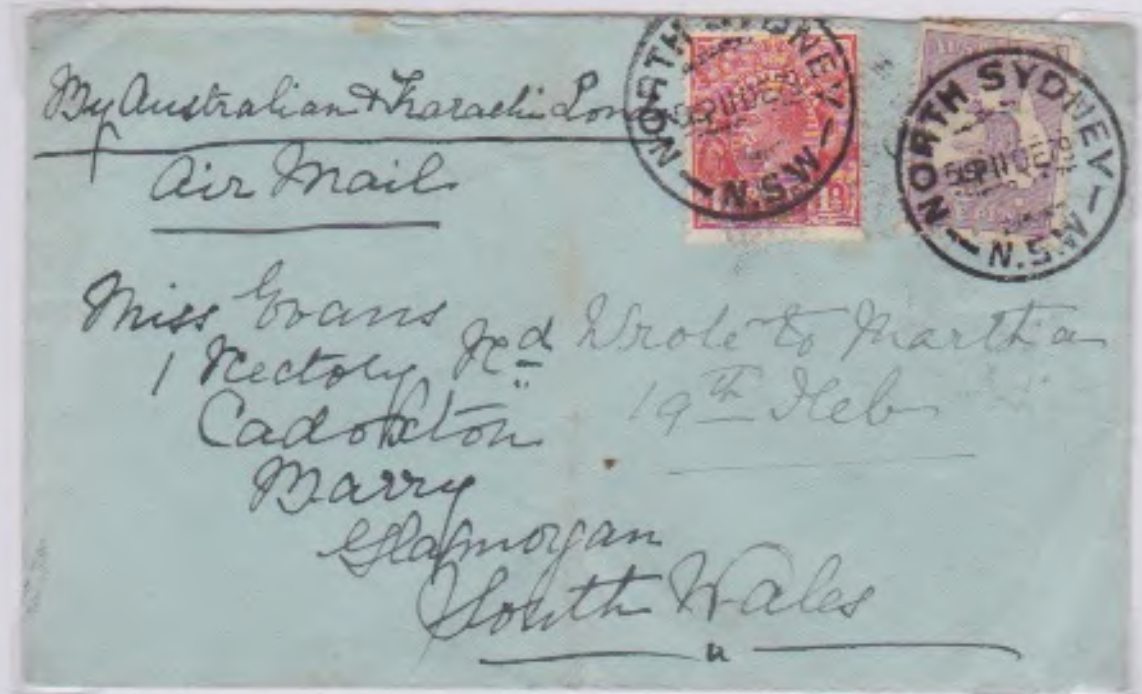 By Australian & Karachi Lon
Air Mail
NORTH SYDNEY
N.S.W
1½
NORTH SYDNEY
N.S.W.
Miss Evans
1 Rectory Rd
Cadoxton
Barry
Glamorgan
South Wales
Wrote to Martha
19th Feb